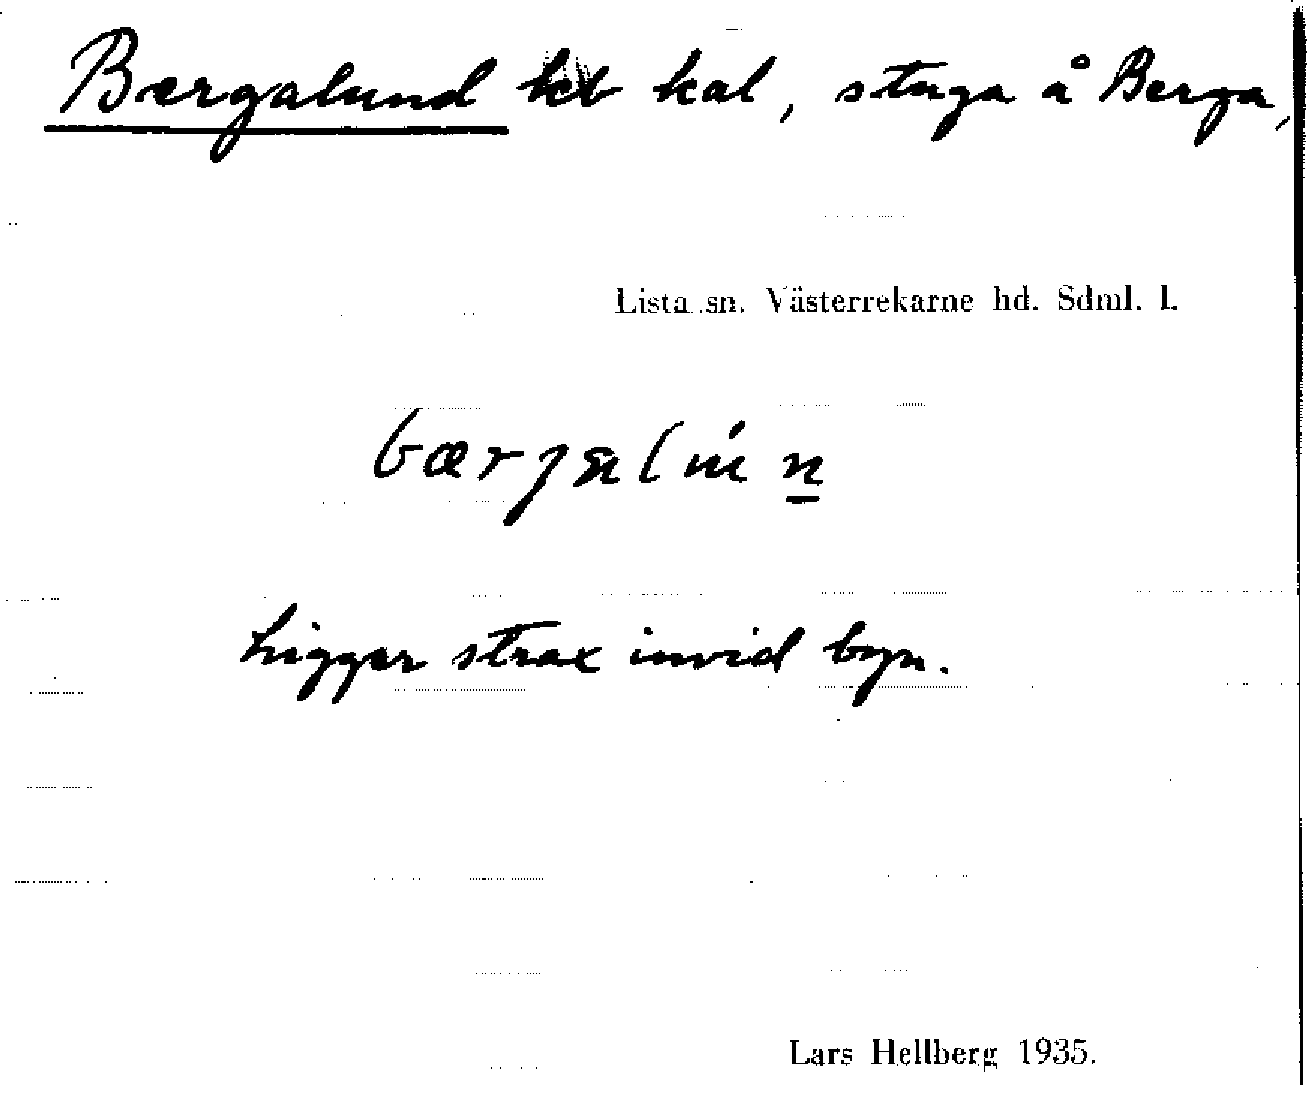 Bergalund kal, stuga å Berga,
Lista sn. Västerrekarne hd. Sdml. l.
Ligger strax invid byn.
Lars Hellberg 1935.